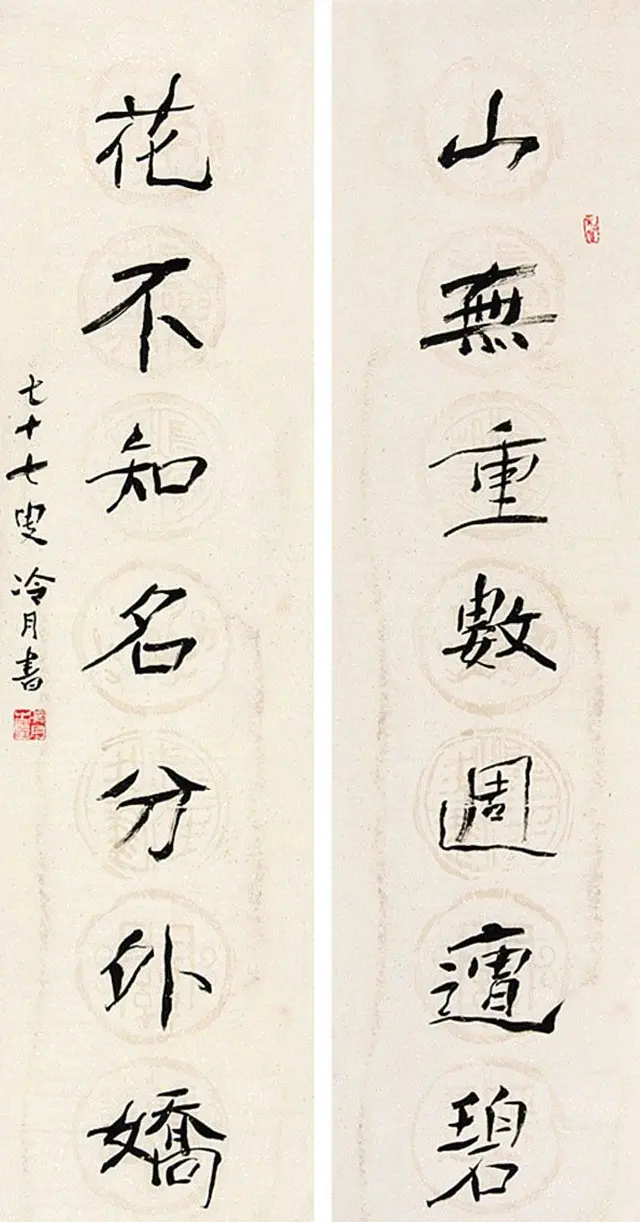 山無重數週遭碧
花不知名分外嬌
七十七叟冷月書